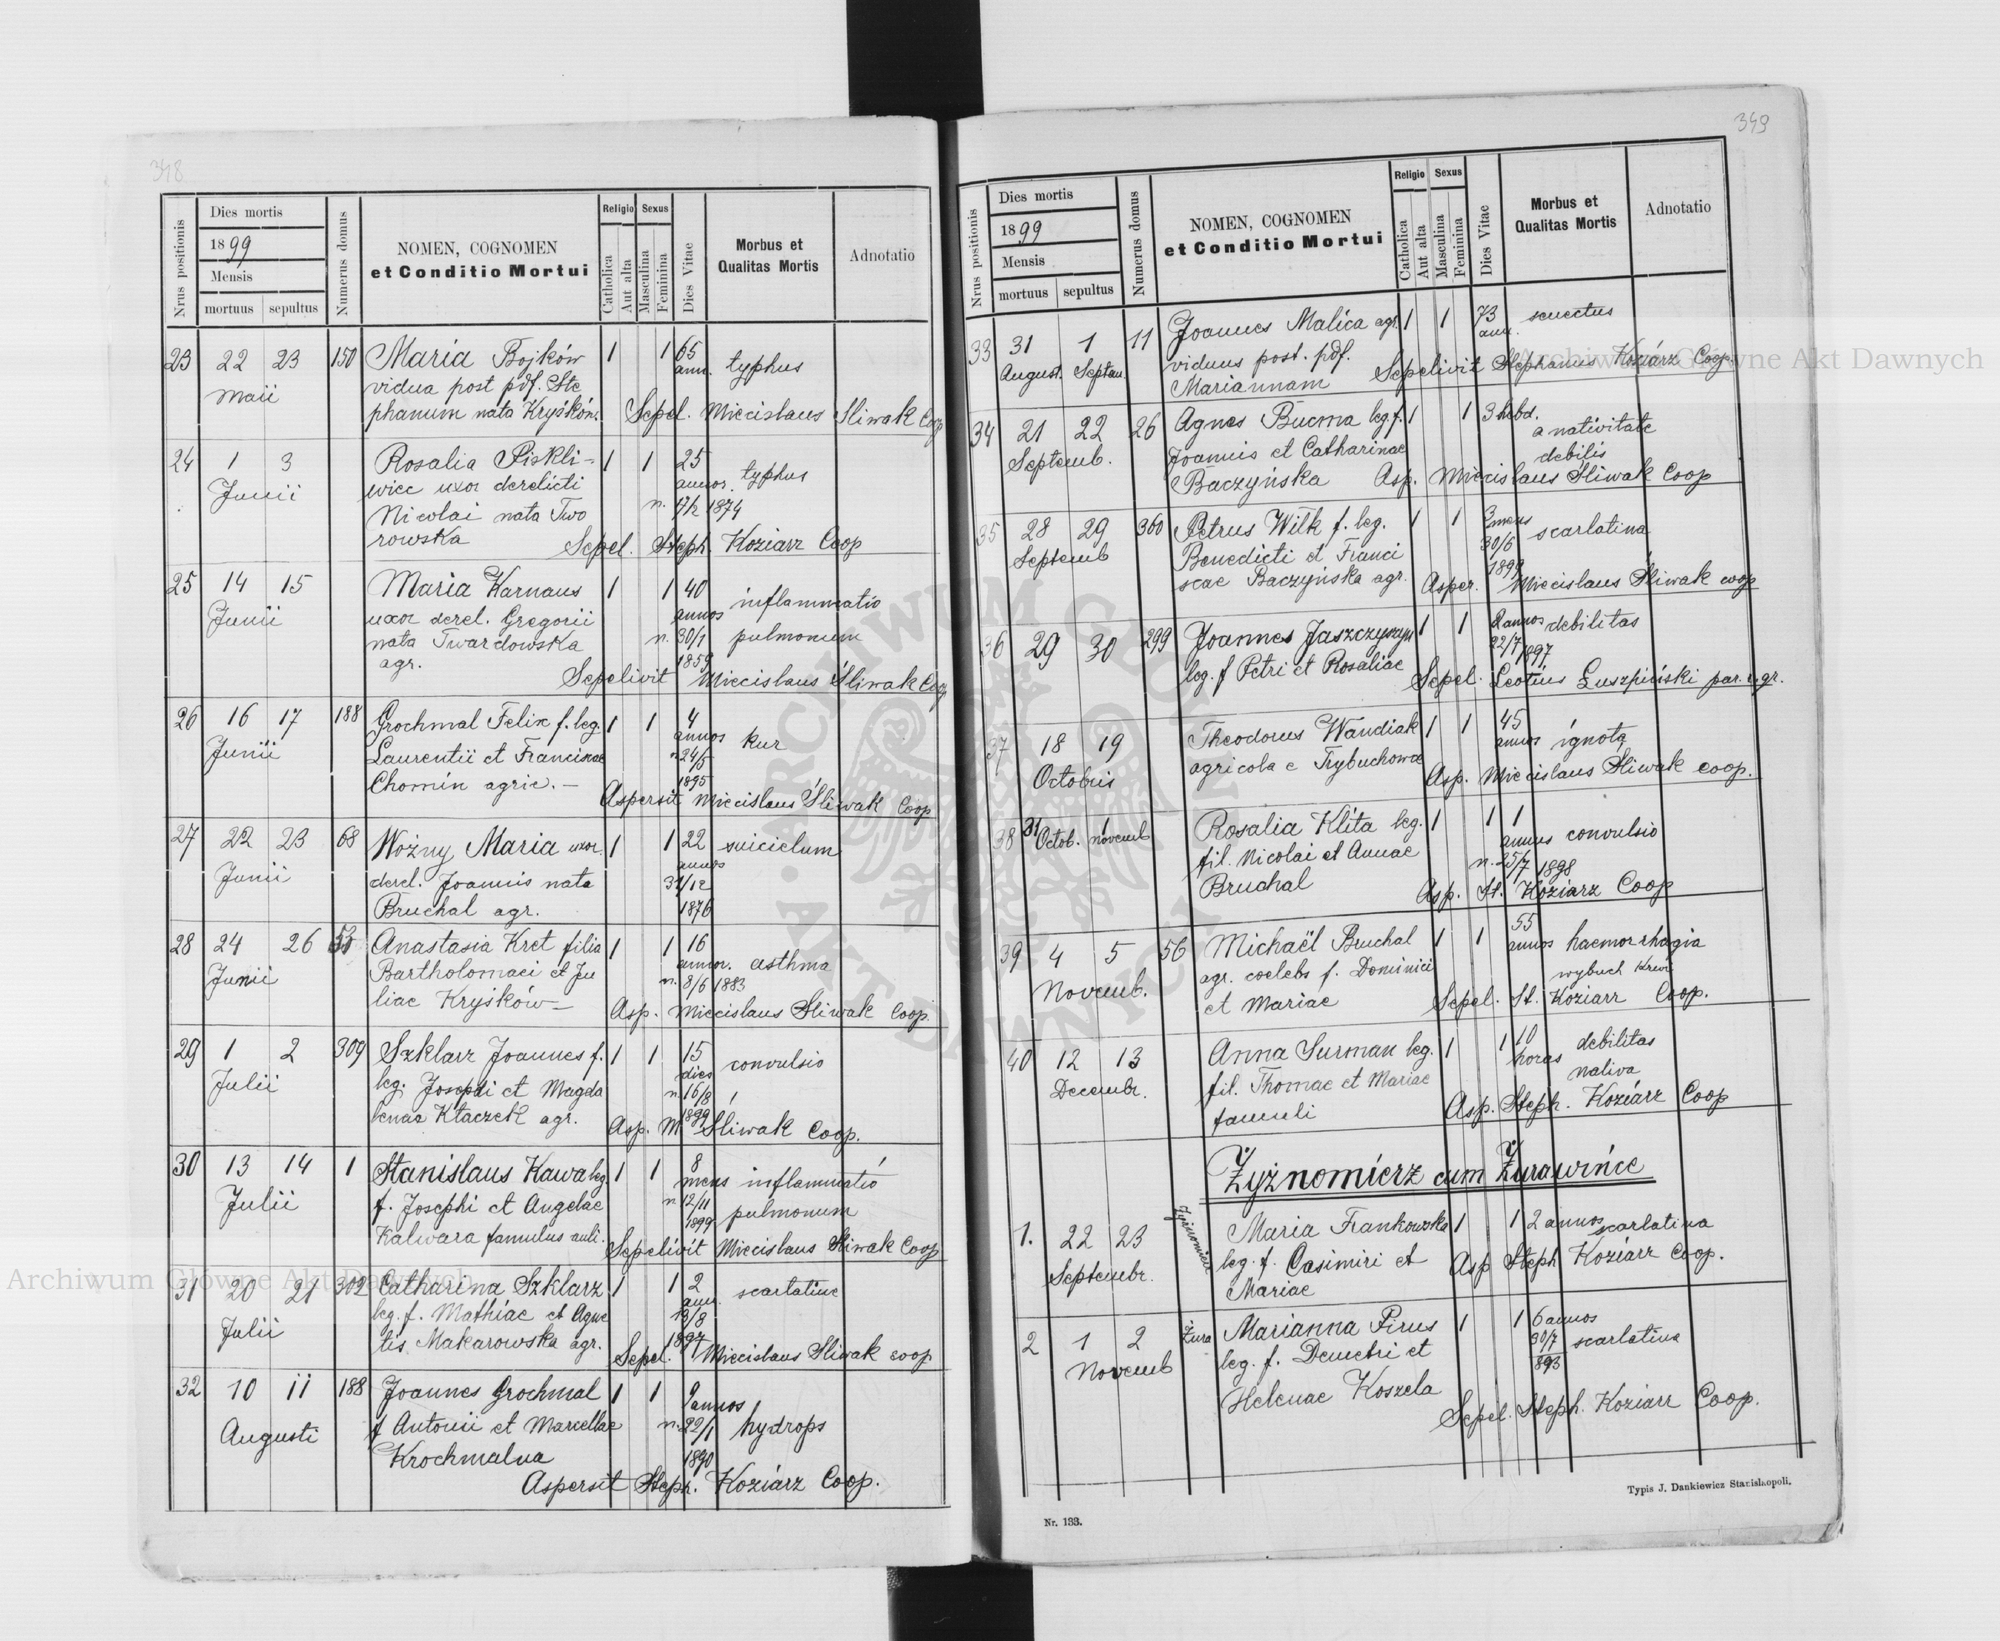 348
Nrus positionis
Dies mortis
1899
Mensis
mortuus sepultus
Numerus domus
NOMEN, COGNOMEN
et Conditio Mortui
Religio
Catholica
Aut alta
Sexus
Masculina
Feminina
Dies Vitae
Morbus et
Qualitas Mortis
Adnotatio
23 22 23 150 Maria Bojków 1 1 65
ann. typhus
Maii vidua post pdf. Ste
phanum nata Kryśków. Sepel. Miecislaus Śliwak Coop
24 1 3 Rosalia Piskli- 1 1 25
Junii wiec uxor derelicti annor. typhus
Nicolai nata Two n. 17/2 1874
rowska Sepel. Steph. Koziarz Coop
25 14 15 Maria Karnaus 1 1 40 inflammatio
Junii uxor derel. Gregorii annos
nata Twardowska n. 30/1 pulmonum
agr. 1859
Sepelivit Miecislaus Śliwak Coop
26 16 17 188 Grochmal Felix f. leg. 1 1 4
Junii Laurentii et Franciscae annos kur
n. 24/5
Chomin agric. — 1895
Aspersit Miecislaus Śliwak Coop
27 22 23 68 Woźny Maria uxor. 1 1 22 suicidum
Junii derel. Joannis nata annos
31/12
Bruchal agr. 1876
28 24 26 Anastasia Kret filia 1 1 16
Junii Bartholomaei et Ju annor. asthma
n. 3/6 1883
liae Kryśków— Asp. Miecislaus Śliwak Coop.
29 1 2 309 Szklarz Joannes f. 1 1 15
Julii leg. Josephi et Magda dies convulsio
n. 16/8
lenae Kłaczek agr. 1899
Asp. M Śliwak Coop.
30 13 14 1 Stanislaus Kawa leg. 1 1 8
Julii f. Josephi et Angelae mens inflammatio
n. 12/11
Kalwara famulus auli. 1899 pulmonum
Sepelivit Miecislaus Śliwak Coop
31 20 21 302 Catharina Szklarz 1 1 2 scarlatine
Julii leg. f. Mathiae et Agne ann.
13/8
tis Makarowska agr. 1897
Sepel. Miecislaus Śliwak coop
32 10 11 188 Joannes Grochmal 1 1 9 annos
Augusti f Antonii et Marcellae n. 22/1 hydrops
Krochmalna 1890
Aspersit Steph. Koziarz Coop.
349
Nrus positionis
Dies mortis
1899
Mensis
mortuus sepultus
Numerus domus
NOMEN, COGNOMEN
et Conditio Mortui
Religio
Catholica
Aut alta
Sexus
Masculina
Feminina
Dies Vitae
Morbus et
Qualitas Mortis
Adnotatio
33 31 1 11 Joannes Malica agr. 1 1 73 senectus
August. Septem. viduus post. pdf. ann.
Mariannam Sepelivit Stephanus Koziarz Coop.
34 21 22 26 Agnes Bucma leg. f. 1 1 3 hebd.
Septemb. Joannis et Catharinae a nativitate
debilis
Baczyńska Asp. Miecislaus Śliwak Coop
35 28 29 360 Petrus Wilk f. leg. 1 1 3 mens scarlatina
Septemb Benedicti et Franci 30/6
scae Baczyńska agr. 1899
Asper. Miecislaus Śliwak coop
36 29 30 299 Joannes Jaszczyszyn 1 1 2 annos debilitas
22/7 1897
leg. f Petri et Rosaliae Sepel. Leotius Łuszpiński par. r. gr.
37 18 19 Theodorus Wandiak 1 1 45
Octobris agricola e Trybuchowce annos ignota
Asp. Miecislaus Śliwak coop.
38 31 Octob. 1 novemb Rosalia Klita leg. 1 1 1
fil. Nicolai et Annae annus convulsio
n. 25/7 1898
Bruchal Asp. St. Koziarz Coop
39 4 5 56 Michaël Bruchal 1 1 55
Novemb. agr. coelebs f. Dominici annos haemorrhagia
wybuch krwi
et Mariae Sepel. St. Koziarz Coop.
40 12 13 Anna Surman leg. 1 1 10 debilitas
Decembr. fil. Thomae et Mariae horas nativa
famuli Asp. Steph. Koziarz Coop
Żyżnomierz cum Żurawińce
1. 22 23 Maria Frankowska 1 1 2 annos scarlatina
Septembr. leg. f. Casimiri et Asp Steph Koziarz Coop.
Mariae
2 1 2 Żura Marianna Pirus 1 1 6 annos
Novemb leg. f. Demetri et 30/7 scarlatina
893
Helenae Koszela
Sepel. Steph. Koziarz Coop.
Typis J. Dankiewicz Stanislaopoli.
Nr. 133.
Archiwum Główne Akt Dawnych
Archiwum Główne Akt Dawnych
ARCHIWUM GŁÓWNE AKT DAWNYCH